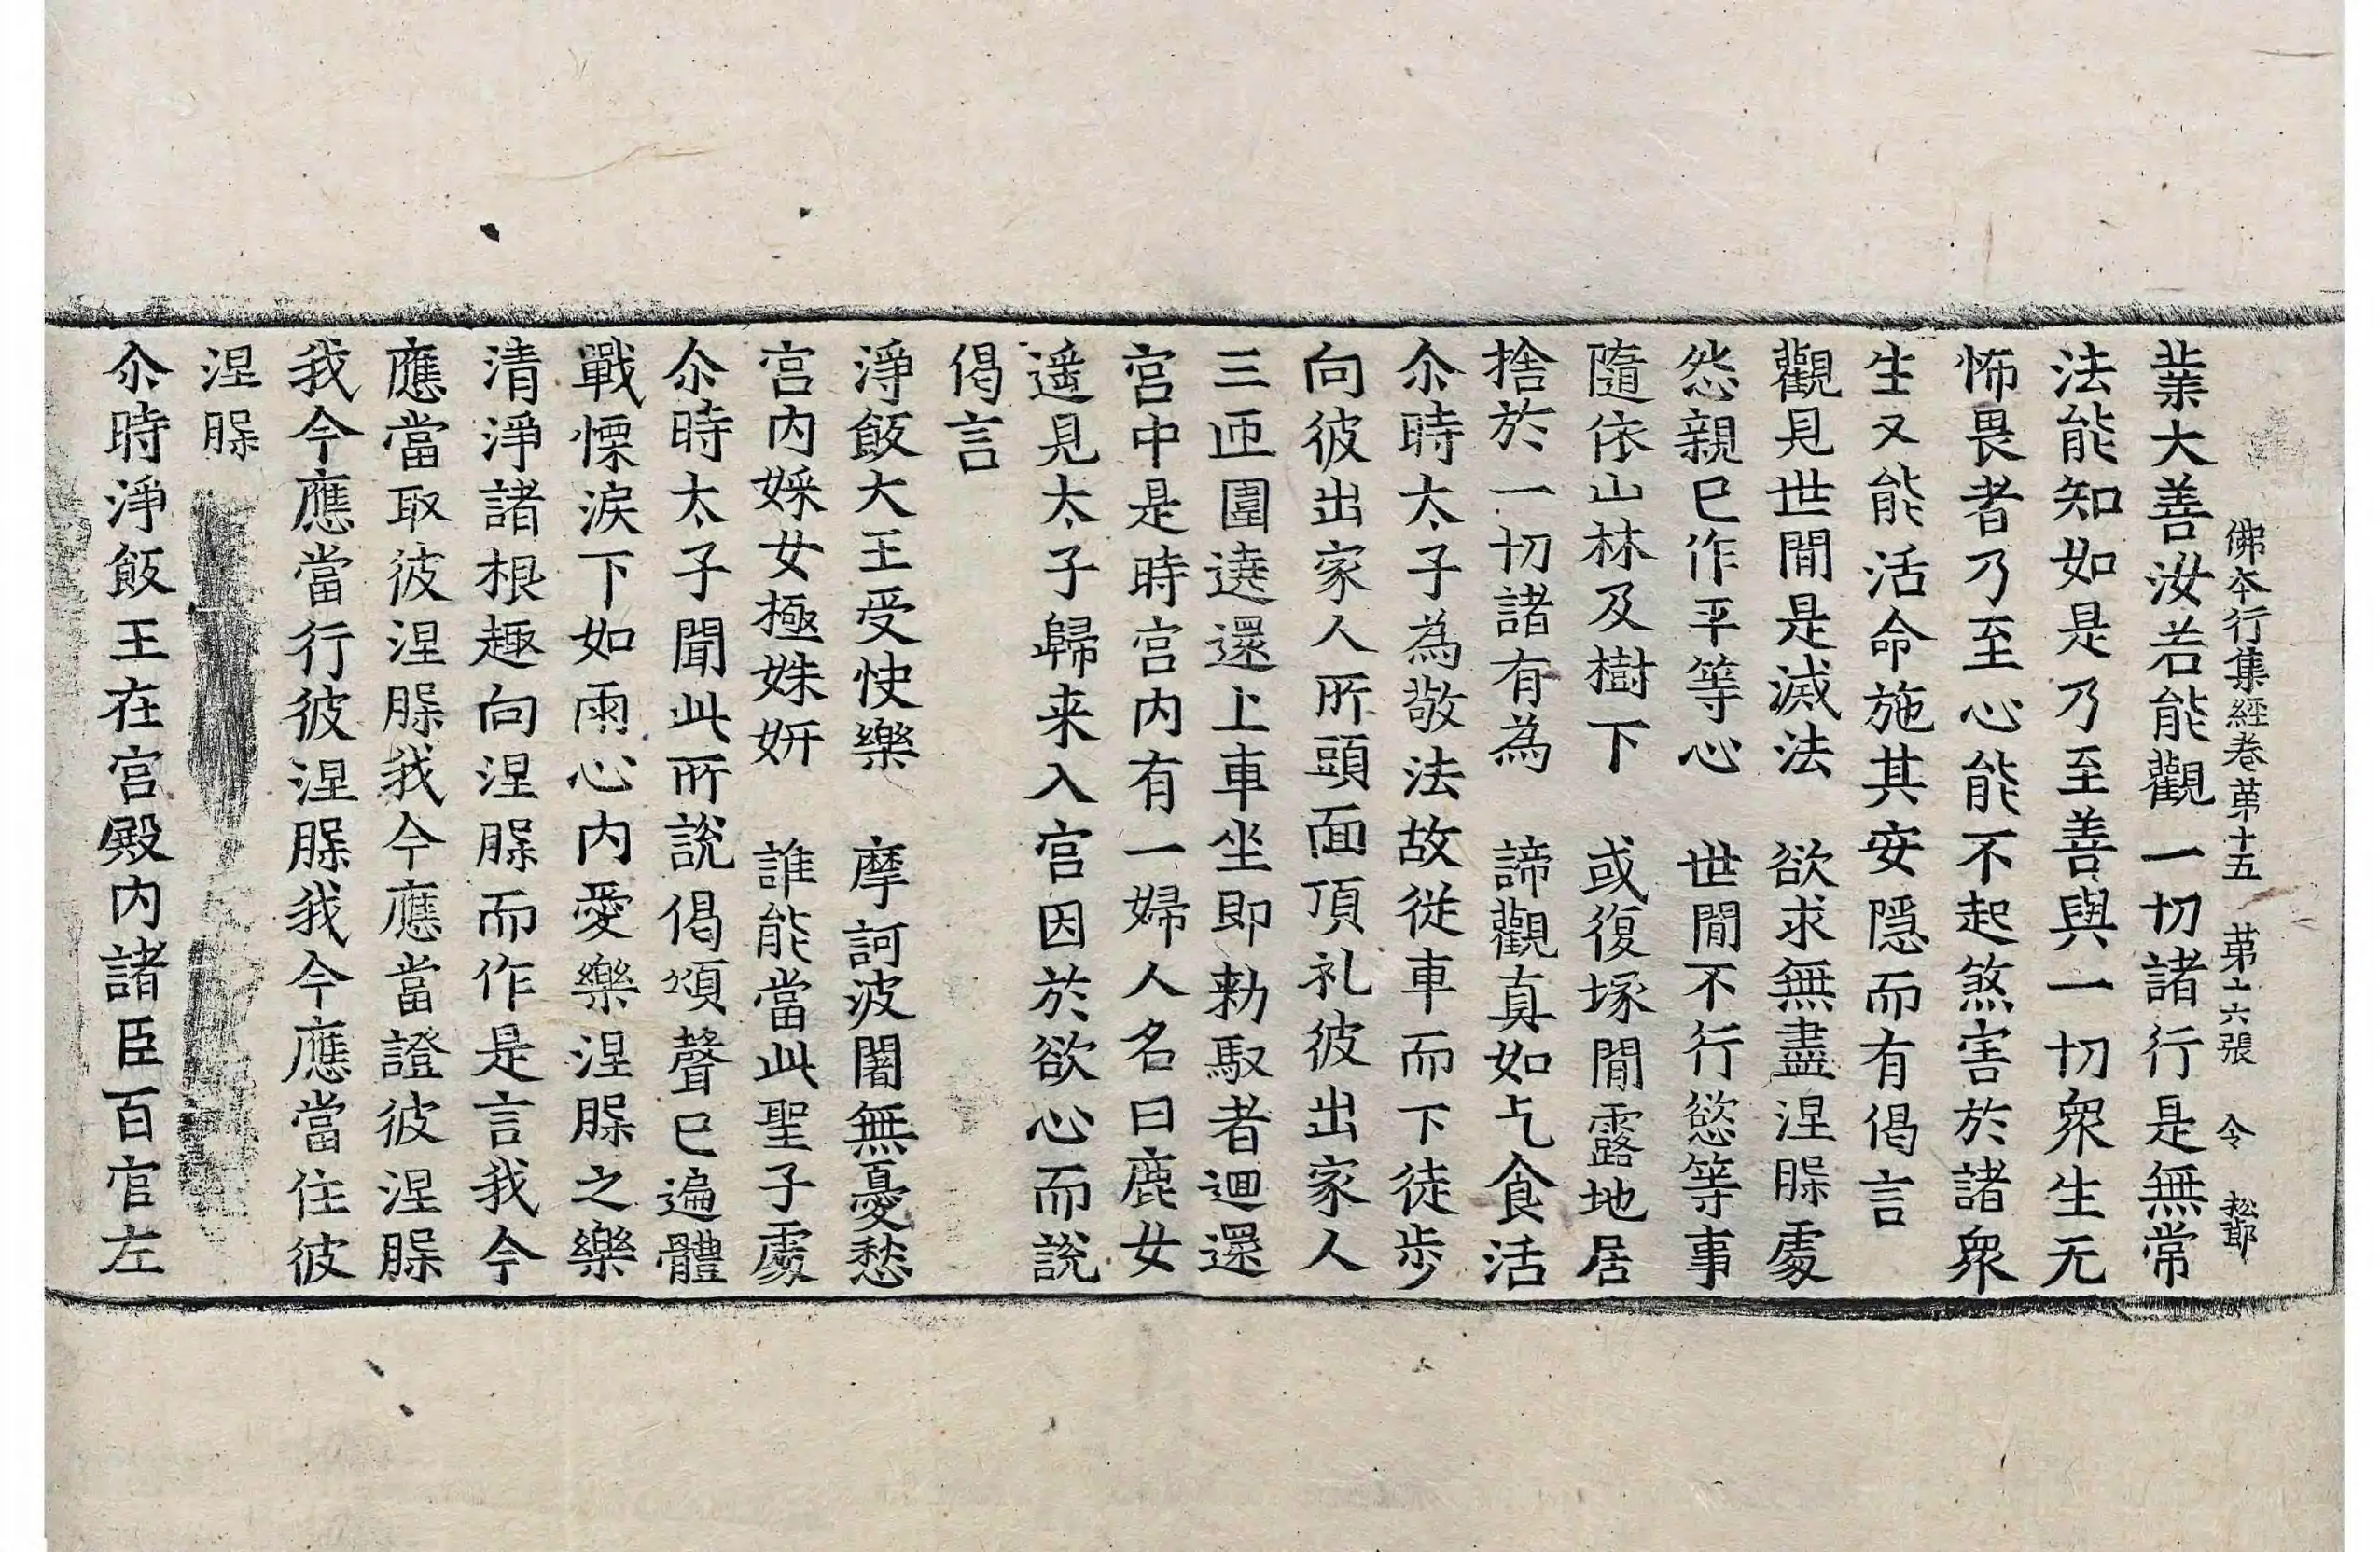 佛本行集經卷苐十五 苐十六張 令 松節
業大善汝若能觀一切諸行是無常
法能知如是乃至善與一切衆生无
怖畏者乃至心能不起煞害於諸衆
生又能活命施其安隱而有偈言
觀見世間是滅法 欲求無盡涅脲處
怨親已作平等心 世間不行慾等事
隨依山林及樹下 或復塚間露地居
捨於一切諸有為 諦觀真如乞食活
尒時太子為敬法故從車而下徒步
向彼出家人所頭面頂礼彼出家人
三匝圍遶還上車坐即勑馭者迴還
宮中是時宮内有一婦人名曰鹿女
遥見太子歸来入宮因於欲心而說
偈言
淨飯大王受快樂 摩訶波闍無憂愁
宮内婇女極姝妍 誰能當此聖子處
尒時太子聞此所說偈頌聲已遍體
戰慄淚下如雨心内愛樂涅脲之樂
清淨諸根趣向涅脲而作是言我今
應當取彼涅脲我今應當證彼涅脲
我今應當行彼涅脲我今應當住彼
涅脲
尒時淨飯王在宮殿内諸臣百官左